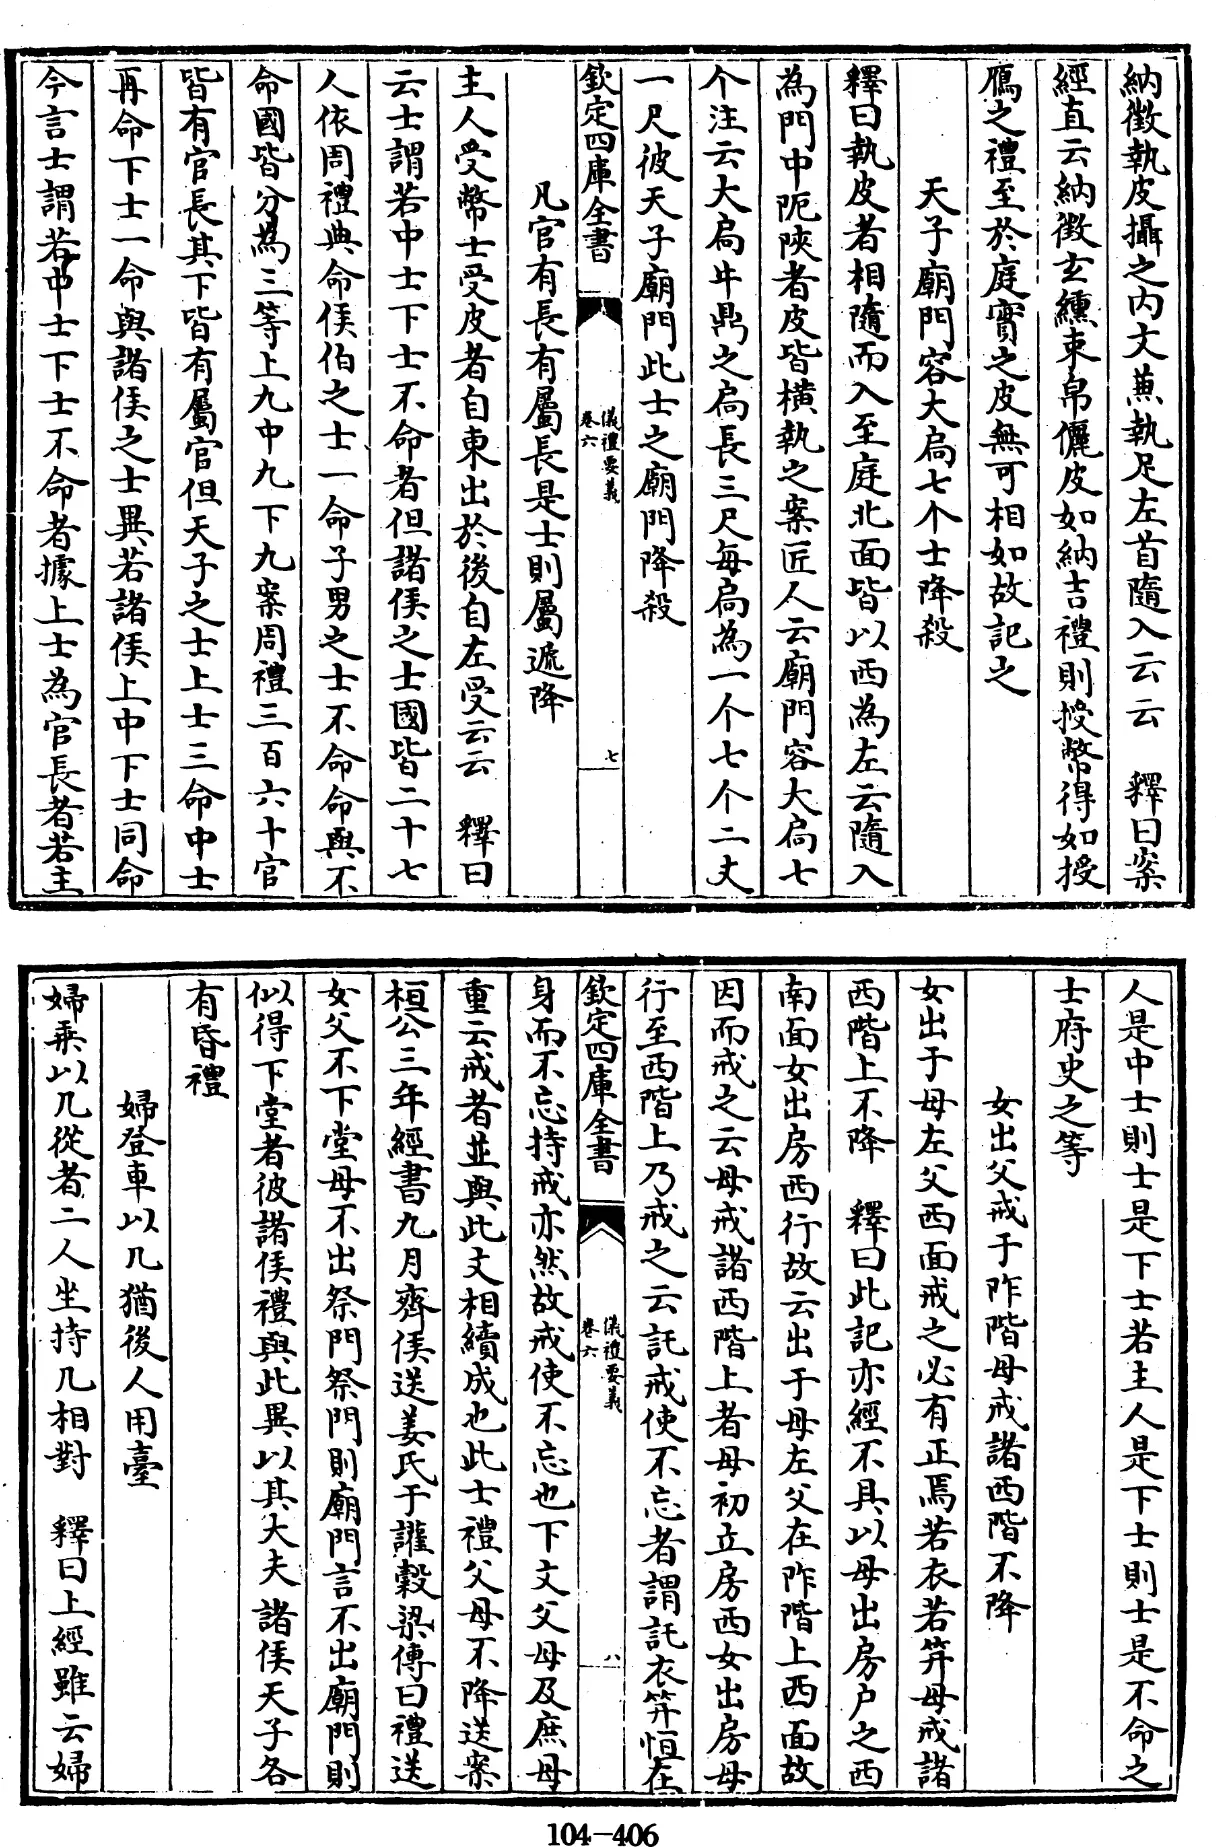 納徵執皮攝之内文兼執足左首隨入云云　釋曰案
經直云納徵玄纁束帛儷皮如納吉禮則授幣得如授
鴈之禮至於庭實之皮無可相如故記之
天子廟門容大扃七个士降殺
釋曰執皮者相隨而入至庭北面皆以西為左云隨入
為門中阨陜者皮皆橫執之案匠人云廟門容大扃七
个注云大扃牛鼎之扃長三尺每扃為一个七个二丈
一尺彼天子廟門此士之廟門降殺
欽定四庫全書
儀禮要義
卷六
七
凡官有長有屬長是士則屬遞降
主人受幣士受皮者自東出於後自左受云云　釋曰
云士謂若中士下士不命者但諸侯之士國皆二十七
人依周禮典命侯伯之士一命子男之士不命命與不
命國皆分為三等上九中九下九案周禮三百六十官
皆有官長其下皆有屬官但天子之士上士三命中士
再命下士一命與諸侯之士異若諸侯上中下士同命
今言士謂若中士下士不命者據上士為官長者若主
人是中士則士是下士若主人是下士則士是不命之
士府史之等
女出父戒于阼階母戒諸西階不降
女出于母左父西面戒之必有正焉若衣若笄母戒諸
西階上不降　釋曰此記亦經不具以母出房户之西
南面女出房西行故云出于母左父在阼階上西面故
因而戒之云母戒諸西階上者母初立房西女出房母
行至西階上乃戒之云託戒使不忘者謂託衣笄恒在
欽定四庫全書
儀禮要義
卷六
八
身而不忘持戒亦然故戒使不忘也下文父母及庶母
重云戒者並與此文相續成也此士禮父母不降送案
桓公三年經書九月齊侯送姜氏于讙穀梁傳曰禮送
女父不下堂母不出祭門祭門則廟門言不出廟門則
似得下堂者彼諸侯禮與此異以其大夫諸侯天子各
有昏禮
婦登車以几猶後人用臺
婦乘以几從者二人坐持几相對　釋曰上經雖云婦
104-406